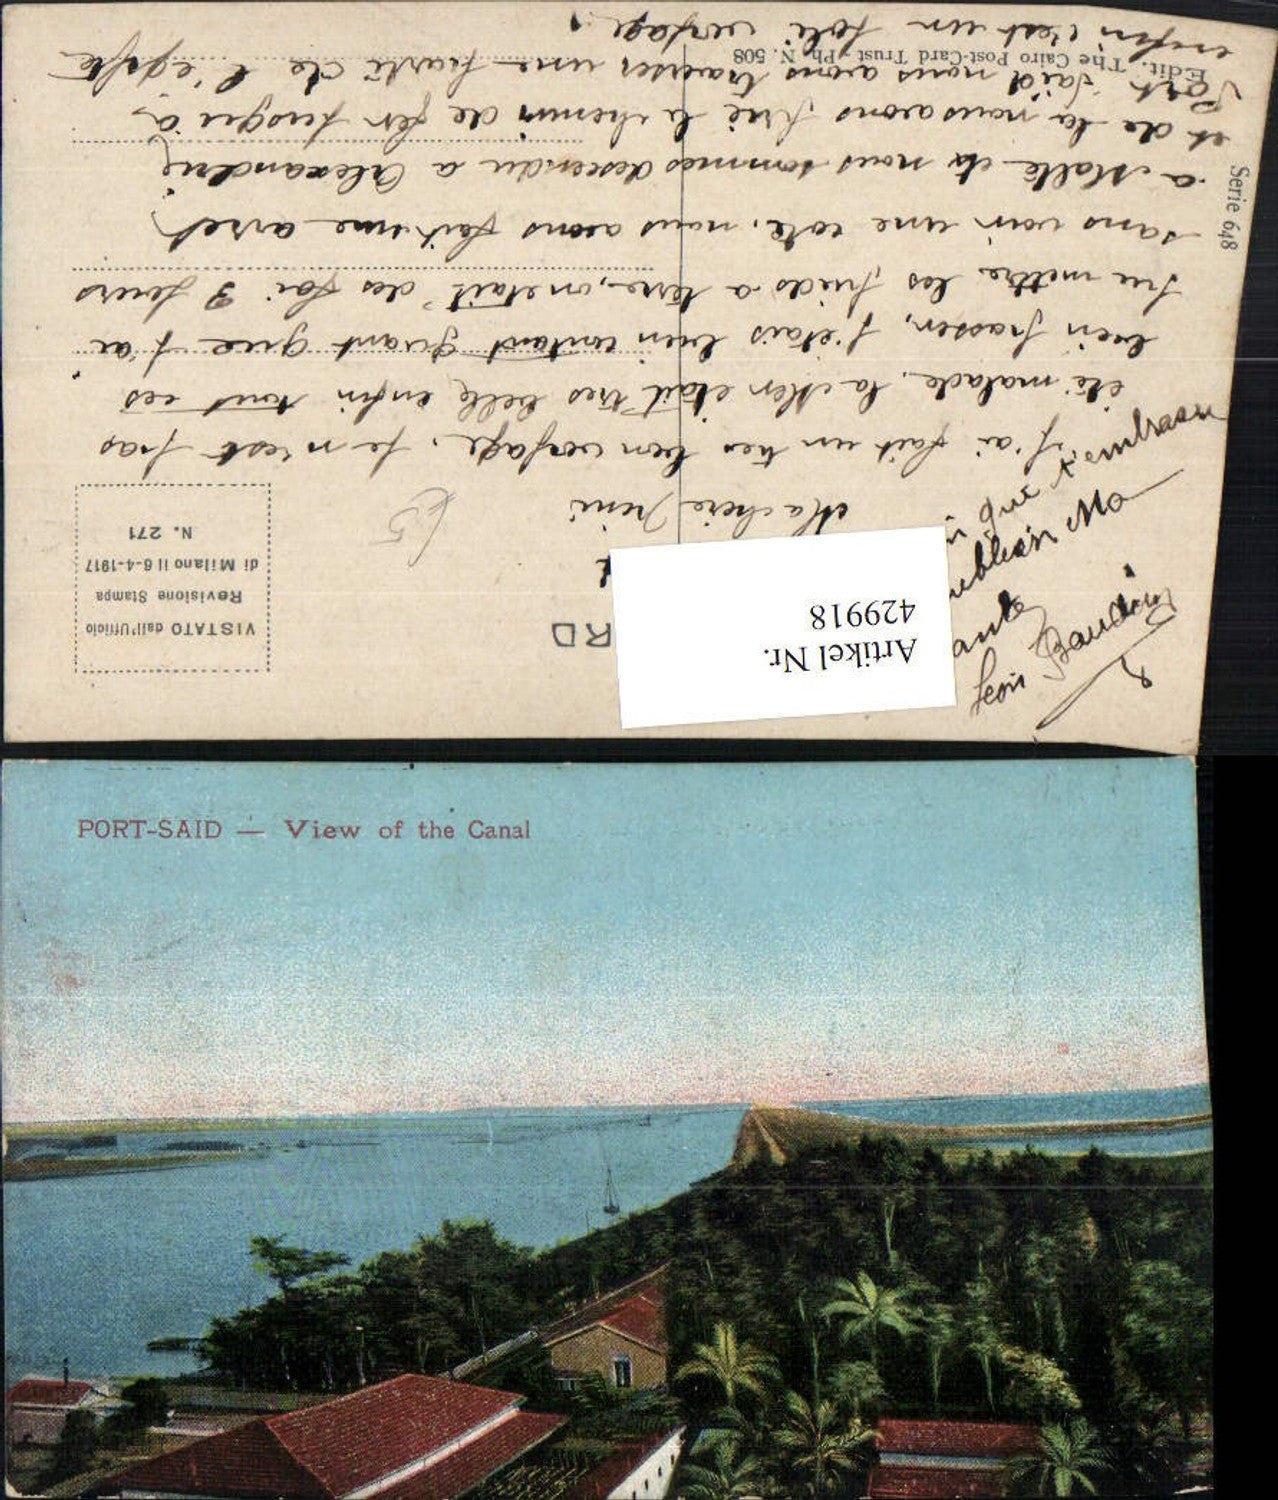 Ma chère Nini
j'ai fait un tres bon voyage, je n'est pas
été malade, la Mer était tres belle enfin tout ces
bien passer, j'etais bien contant quant que j'ai
pu mettre les pieds a terre, on etait des foi 3 jours
sans voir une cote, nous avons fait une arret
a Malte et nous sommes descendu a Alexandrie
et de la nous avons prie le chemin de fer jusqu'a
Port Saïd nous avons traverser une partie de l'egypte
enfin c'est un joli voyage.
que t'embrasse
Léon Baudoin
RD
Edit. The Cairo Post-Card Trust - Ph. N. 508
Serie 648
VISTATO dall'Ufficio
Revisione Stampa
di Milano il 6-4-1917
N. 271
Artikel Nr.
429918
PORT-SAID — View of the Canal